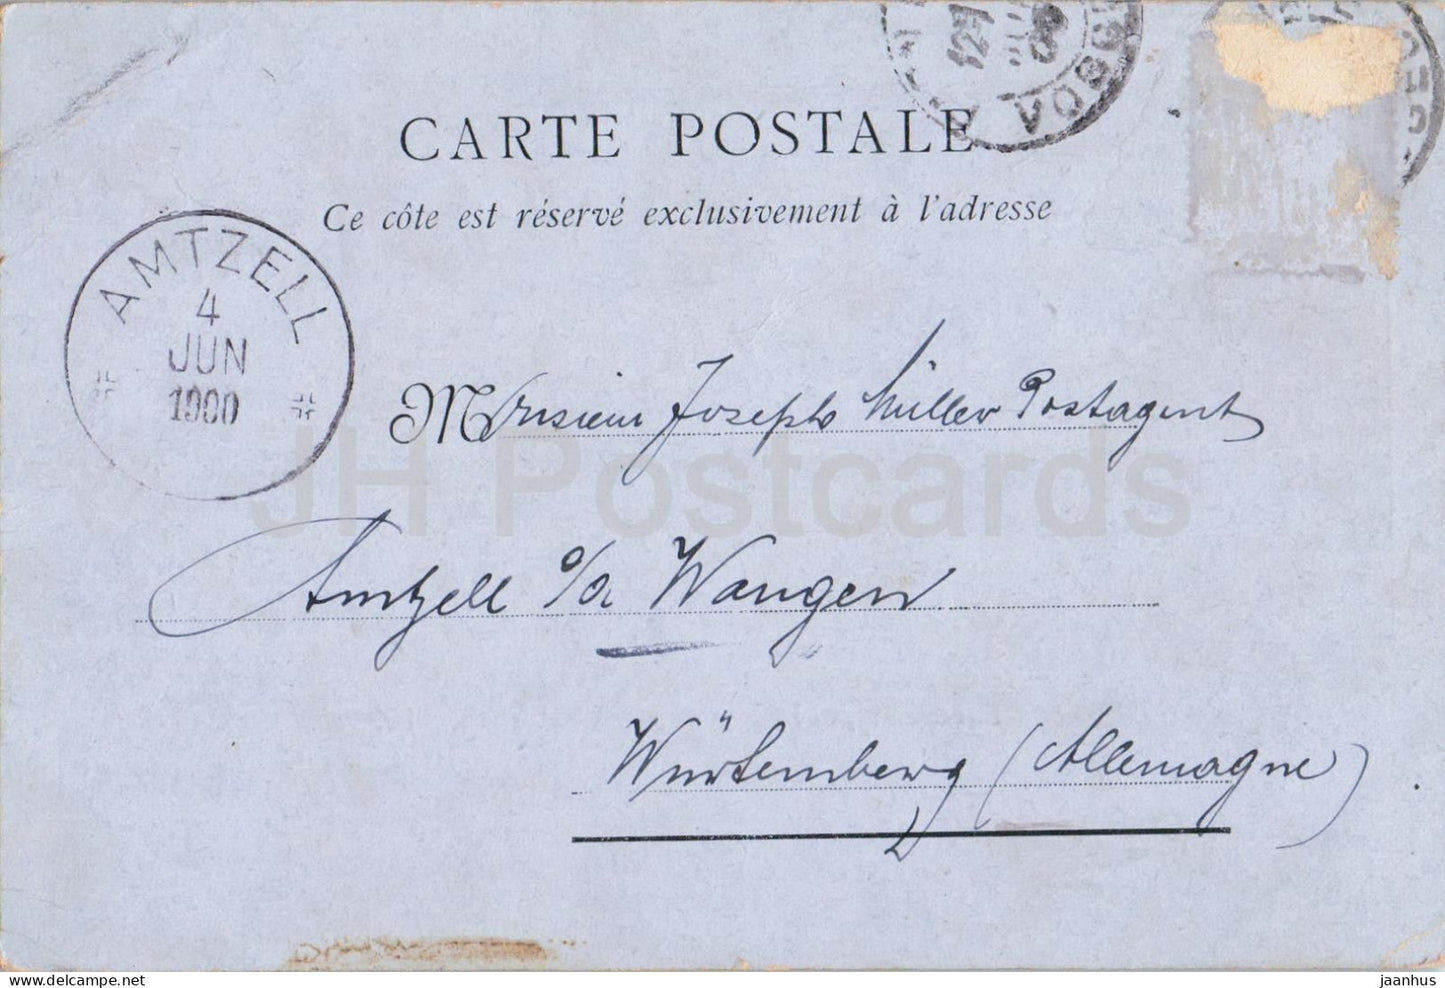 CARTE POSTALE
Ce côte est réservé exclusivement à l'adresse
AMTZELL
4
JUN
1900
VOSGES
Monsieur Joseph Müller Postagent
Amtzell o/a Wangen
Würtemberg (Allemagne)
JH Postcards
delcampe.net
jaanhus